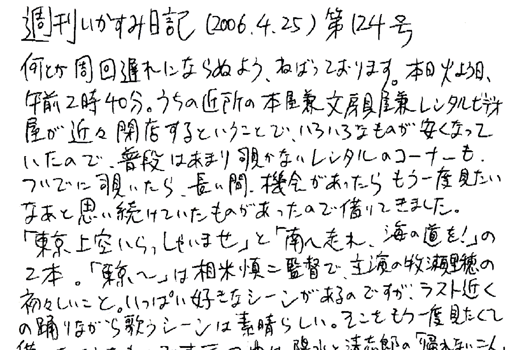 週刊いかすみ日記 (2006.4.25) 第124号
何とか周回遅れにならぬよう、ねばっております。本日火よう日、
午前2時40分。うちの近所の本屋兼文房具屋兼レンタルビデオ
屋が近々閉店するということで、いろいろなものが安くなって
いたので、普段はあまり覗かないレンタルのコーナーも、
ついでに覗いたら、長い間、機会があったらもう一度見たい
なあと思い続けていたものがあったので借りてきました。
「東京上空いらっしゃいませ」と「南へ走れ、海の道を!」の
2本。「東京〜」は相米慎二監督で、主演の牧瀬里穂の
初々しいこと。いっぱい好きなシーンがあるのですが、ラスト近く
の踊りながら歌うシーンは素晴らしい。そこをもう一度見たくて